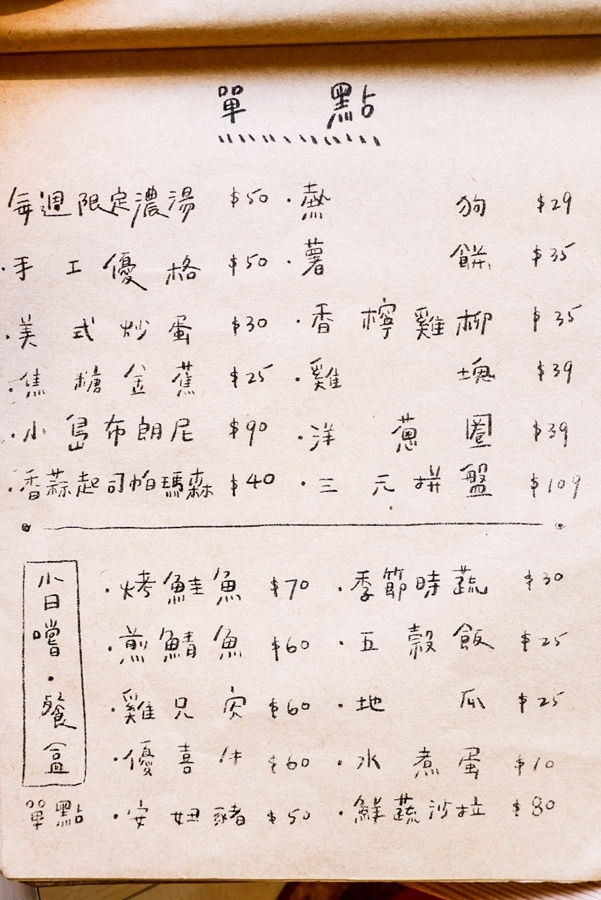 單 點
每週限定濃湯 $50 ·熱狗 $29
·手工優格 $50 ·薯餅 $35
·美式炒蛋 $30 ·香檸雞柳 $35
·焦糖金蕉 $25 ·雞塊 $39
·小島布朗尼 $90 ·洋蔥圈 $39
·香蒜起司帕瑪森 $40 ·三元拼盤 $109
小日嚐·餐盒
單點
·烤鮭魚 $70 ·季節時蔬 $30
·煎鯖魚 $60 ·五穀飯 $25
·雞兄 $60 ·地瓜 $25
·優喜牛 $60 ·水煮蛋 $10
·安妞豬 $50 ·鮮蔬沙拉 $80